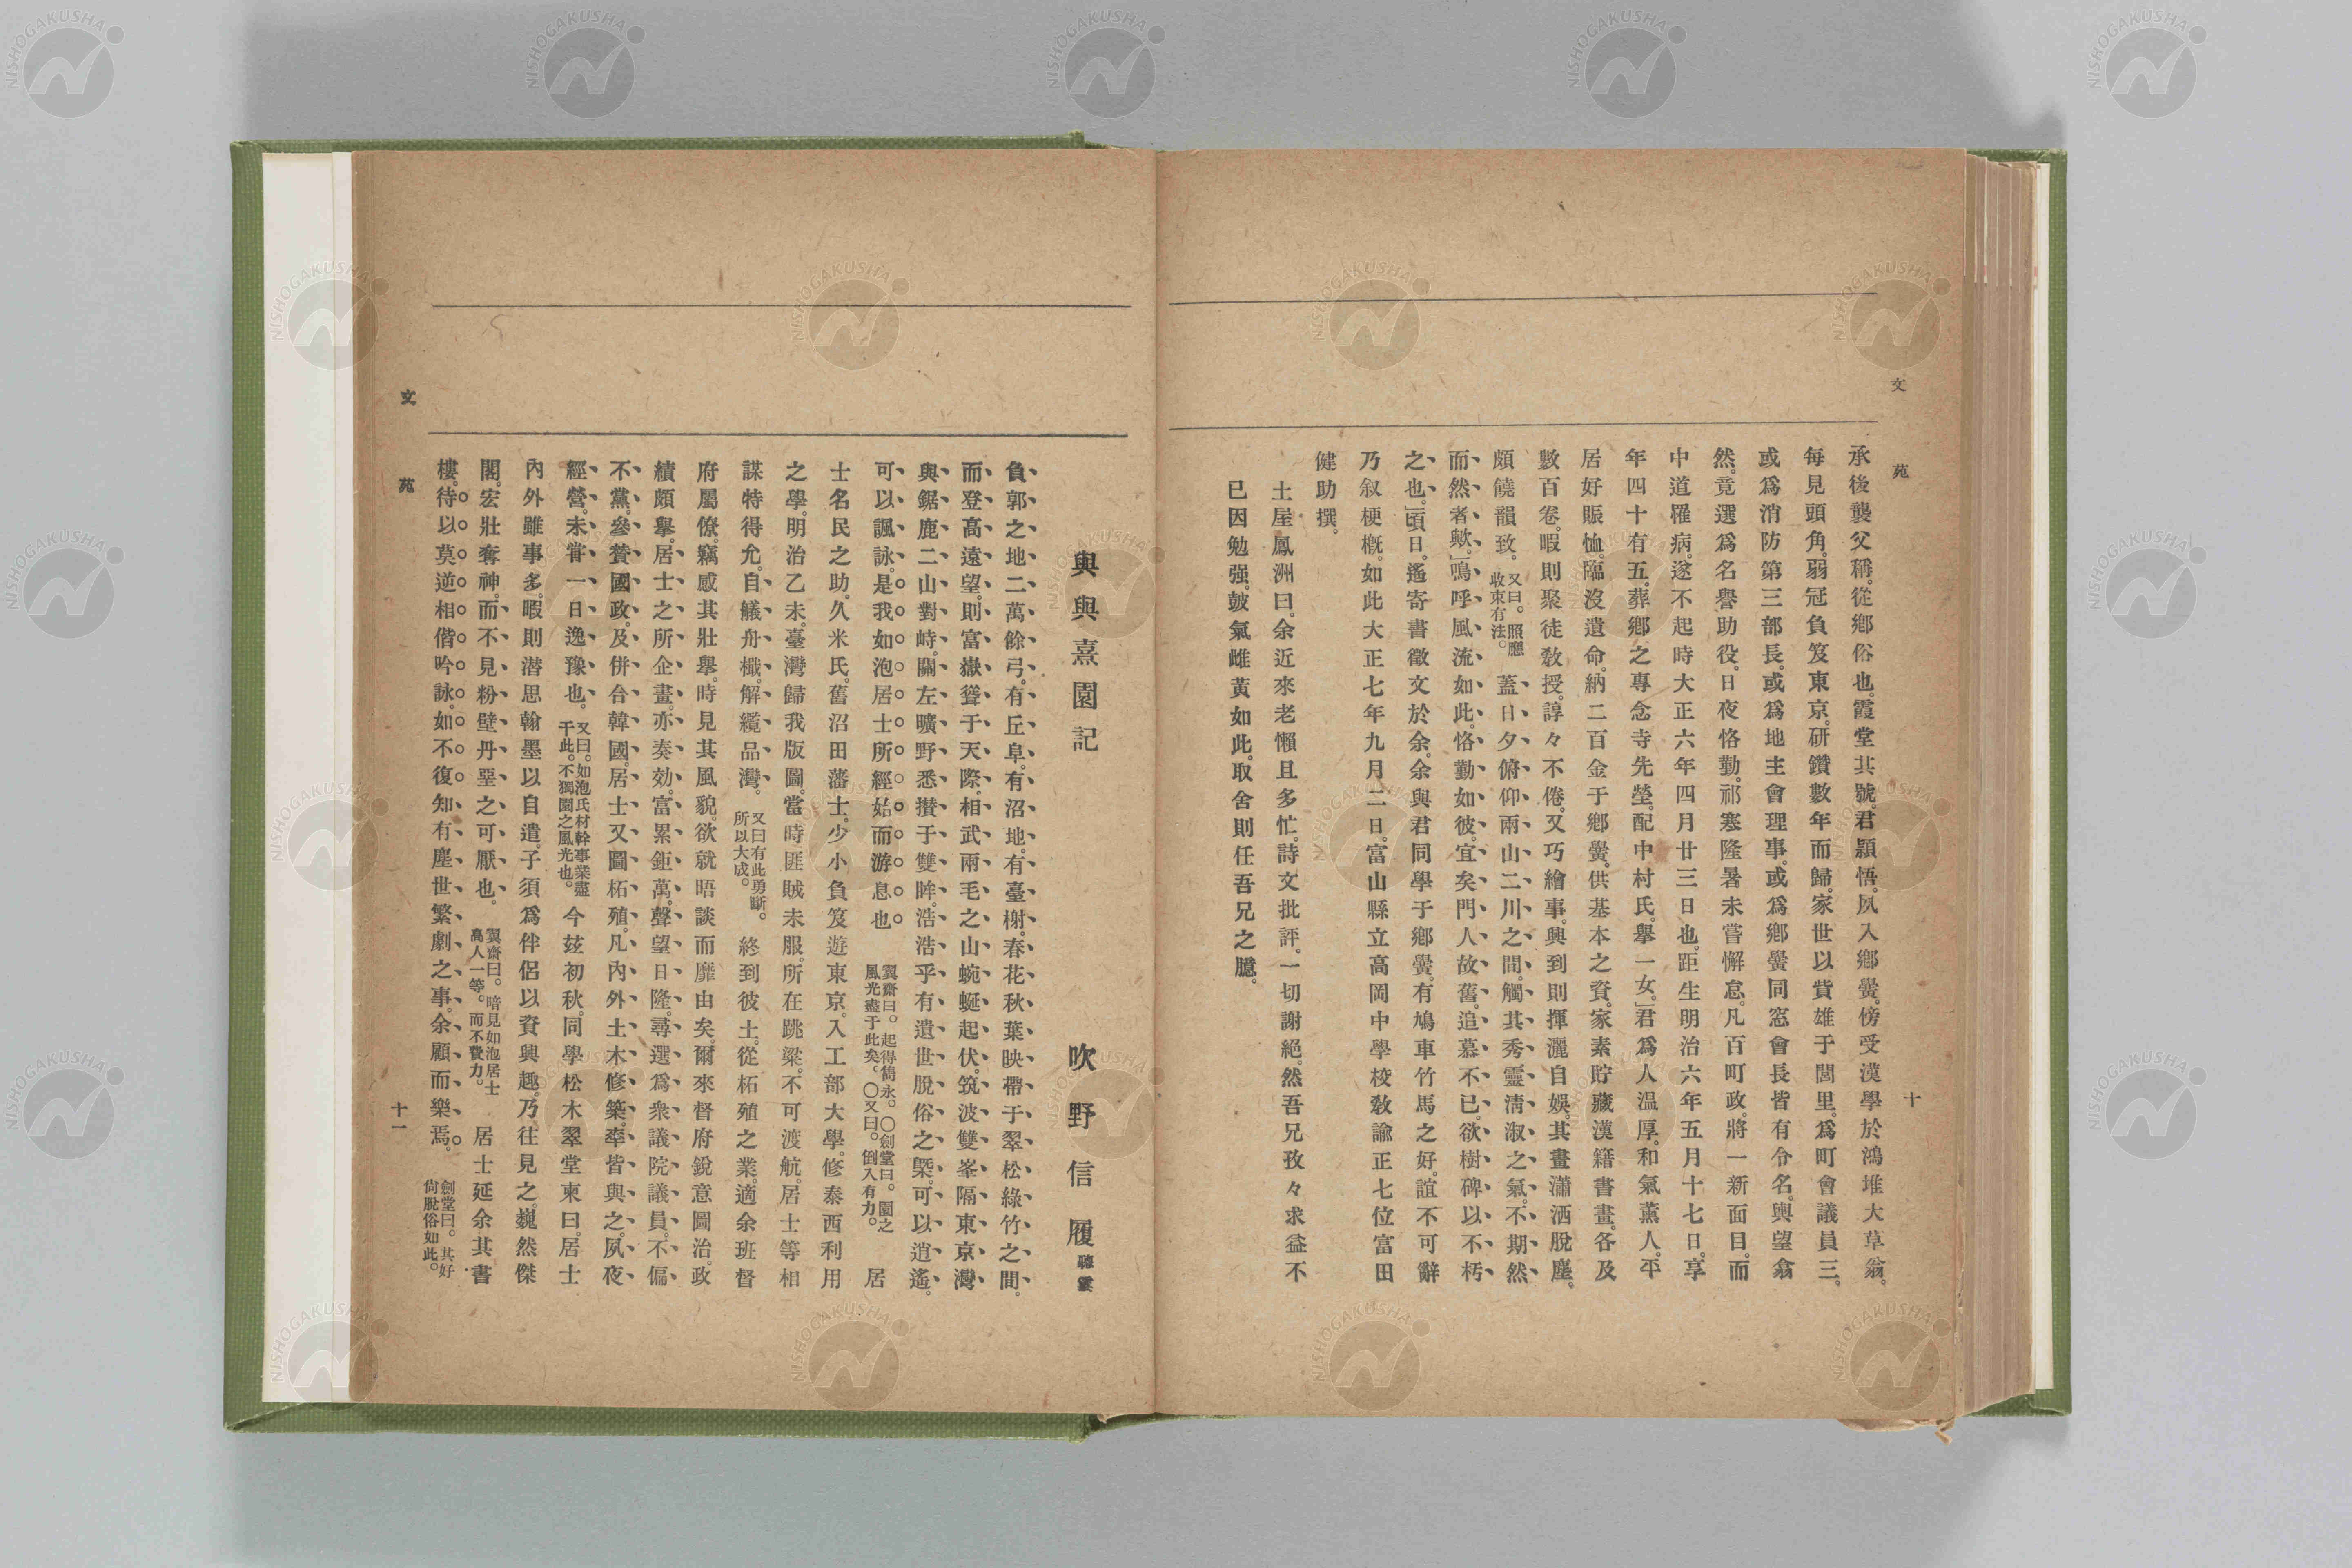 文苑
十
承後襲父稱。從鄉俗也。霞堂其號。君顯悟。夙入鄉黌。傍受漢學於鴻堆大草翁。
每見頭角。弱冠負笈東京。研鑽數年而歸。家世以貲雄于閭里。爲町會議員三。
或爲消防第三部長。或爲地主會理事。或爲鄉黌同窓會長。皆有令名。輿望翕
然。竟選爲名譽助役。日夜恪勤。祁寒隆暑未嘗懈怠。凡百町政。將一新面目。而
中道罹病。遂不起。時大正六年四月廿三日也。距生明治六年五月十七日。享
年四十有五。葬鄉之專念寺先塋。配中村氏。擧一女。」君爲人温厚。和氣薰人。平
居好賑恤。臨沒遺命。納二百金于鄉黌。供基本之資。家素貯藏漢籍書畫。各及
數百卷。暇則聚徒敎授。諄々不倦。又巧繪事。興到則揮灑自娛。其畫瀟洒脫塵。
頗饒韻致。又曰。照應收束有法。蓋日夕俯仰兩山二川之間。觸其秀靈淸淑之氣。不期然
而然者歟。」嗚呼風流如此。恪勤如彼。宜矣門人故舊。追慕不已。欲樹碑以不朽
之也。」頃日。遙寄書徵文於余。余與君同學于鄉黌。有鳩車竹馬之好。誼不可辭
乃叙梗概。如此大正七年九月二日。富山縣立高岡中學校敎諭正七位富田
健助撰。
土屋鳳洲曰。余近來老懶且多忙。詩文批評。一切謝絕。然吾兄孜々求益不
已因勉强。皷氣雌黃如此。取舍則任吾兄之臆。
與與熹園記
吹野信履聽雲
負郭之地二萬餘弓。有丘阜。有沼地。有臺榭。春花秋葉映帶于翠松綠竹之間。
而登高遠望。則富嶽聳于天際。相武兩毛之山蜿蜒起伏。筑波雙峯隔東京灣。
與鋸鹿二山對峙。關左曠野悉攅于雙眸。浩浩乎有遺世脫俗之槩。可以逍遙。
可以諷詠。是我如泡居士所經始而游息也。翼齋曰。起得雋永。〇劍堂曰。園之風光盡于此矣。〇又曰。倒入有力。居
士名民之助。久米氏。舊沼田藩士。少小負笈遊東京。入工部大學。修泰西利用
之學。明治乙未。臺灣歸我版圖。當時匪賊未服。所在跳梁。不可渡航。居士等相
謀特得允。自艤舟檝。解纜品灣。又曰有此勇斷。所以大成。終到彼土。從柘殖之業。適余班督
府屬僚。竊感其壯擧。時見其風貌。欲就晤談而靡由矣。爾來督府銳意圖治。政
績頗擧。居士之所企畫。亦奏効。富累鉅萬。聲望日隆。尋選爲衆議院議員。不偏
不黨。參賛國政。及併合韓國。居士又圖柘殖。凡內外土木修築。率皆與之。夙夜
經營。未甞一日逸豫也。又曰。如泡氏材幹事業盡于此。不獨園之風光也。今玆初秋。同學松木翠堂柬曰。居士
內外雖事多。暇則潜思翰墨以自遣。子須爲伴侶以資興趣。乃往見之。巍然傑
閣。宏壯奪神。而不見粉壁丹堊之可厭也。翼齋曰。暗見如泡居士高人一等。而不費力。居士延余其書
樓。待以莫逆相偕吟詠。如不復知有塵世繁劇之事。余顧而樂焉。劍堂曰。其好尙脫俗如此。
文苑
十一